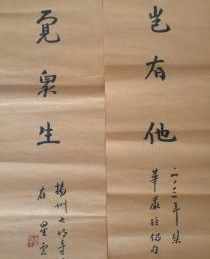 豈有他
二〇一三年
華嚴經偈句
覓眾生
揚州大明寺
星雲